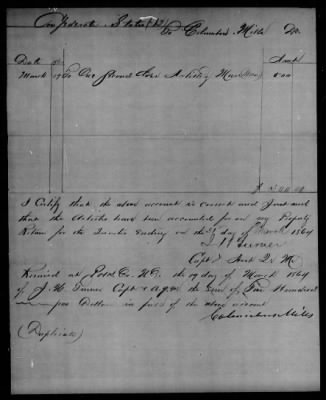 Confederate States
To Columbus Mills Dr.
Date Amt
March 19 To One Horse 500
$ 500.00
I Certify that the above account is correct and Just and
that the Articles have been accounted for on my Property
Return for the Quarter Ending on the 31 day of March 1864
Capt & Asst Q. M.
Received at the 19 day of March 1864
of J. H. Turner Capt & A.Q.M. the sum of Five Hundred
Dollars in full of the above account
Columbus Mills
(Duplicate)